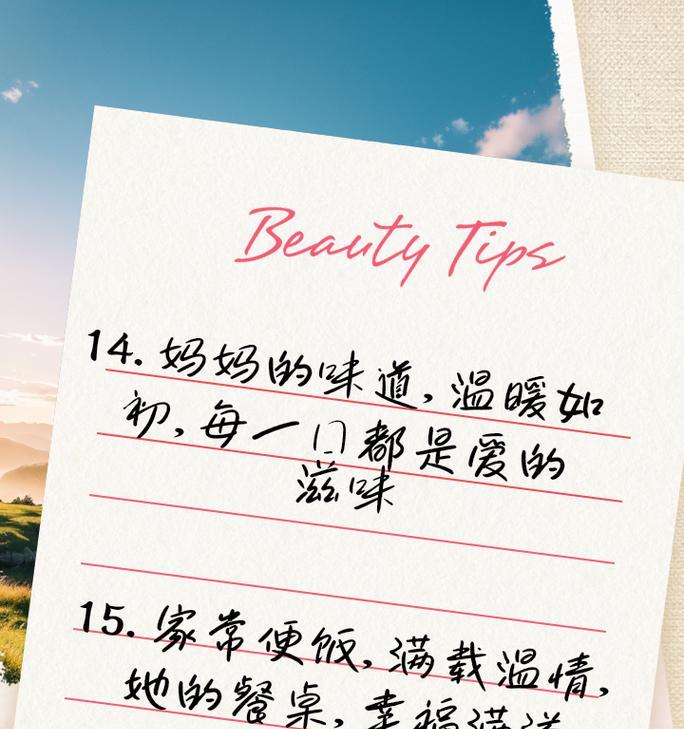 Beauty Tips
14. 妈妈的味道，温暖如
初，每一口都是爱的
滋味
15. 家常便饭，满载温情，
她的餐桌，幸福满